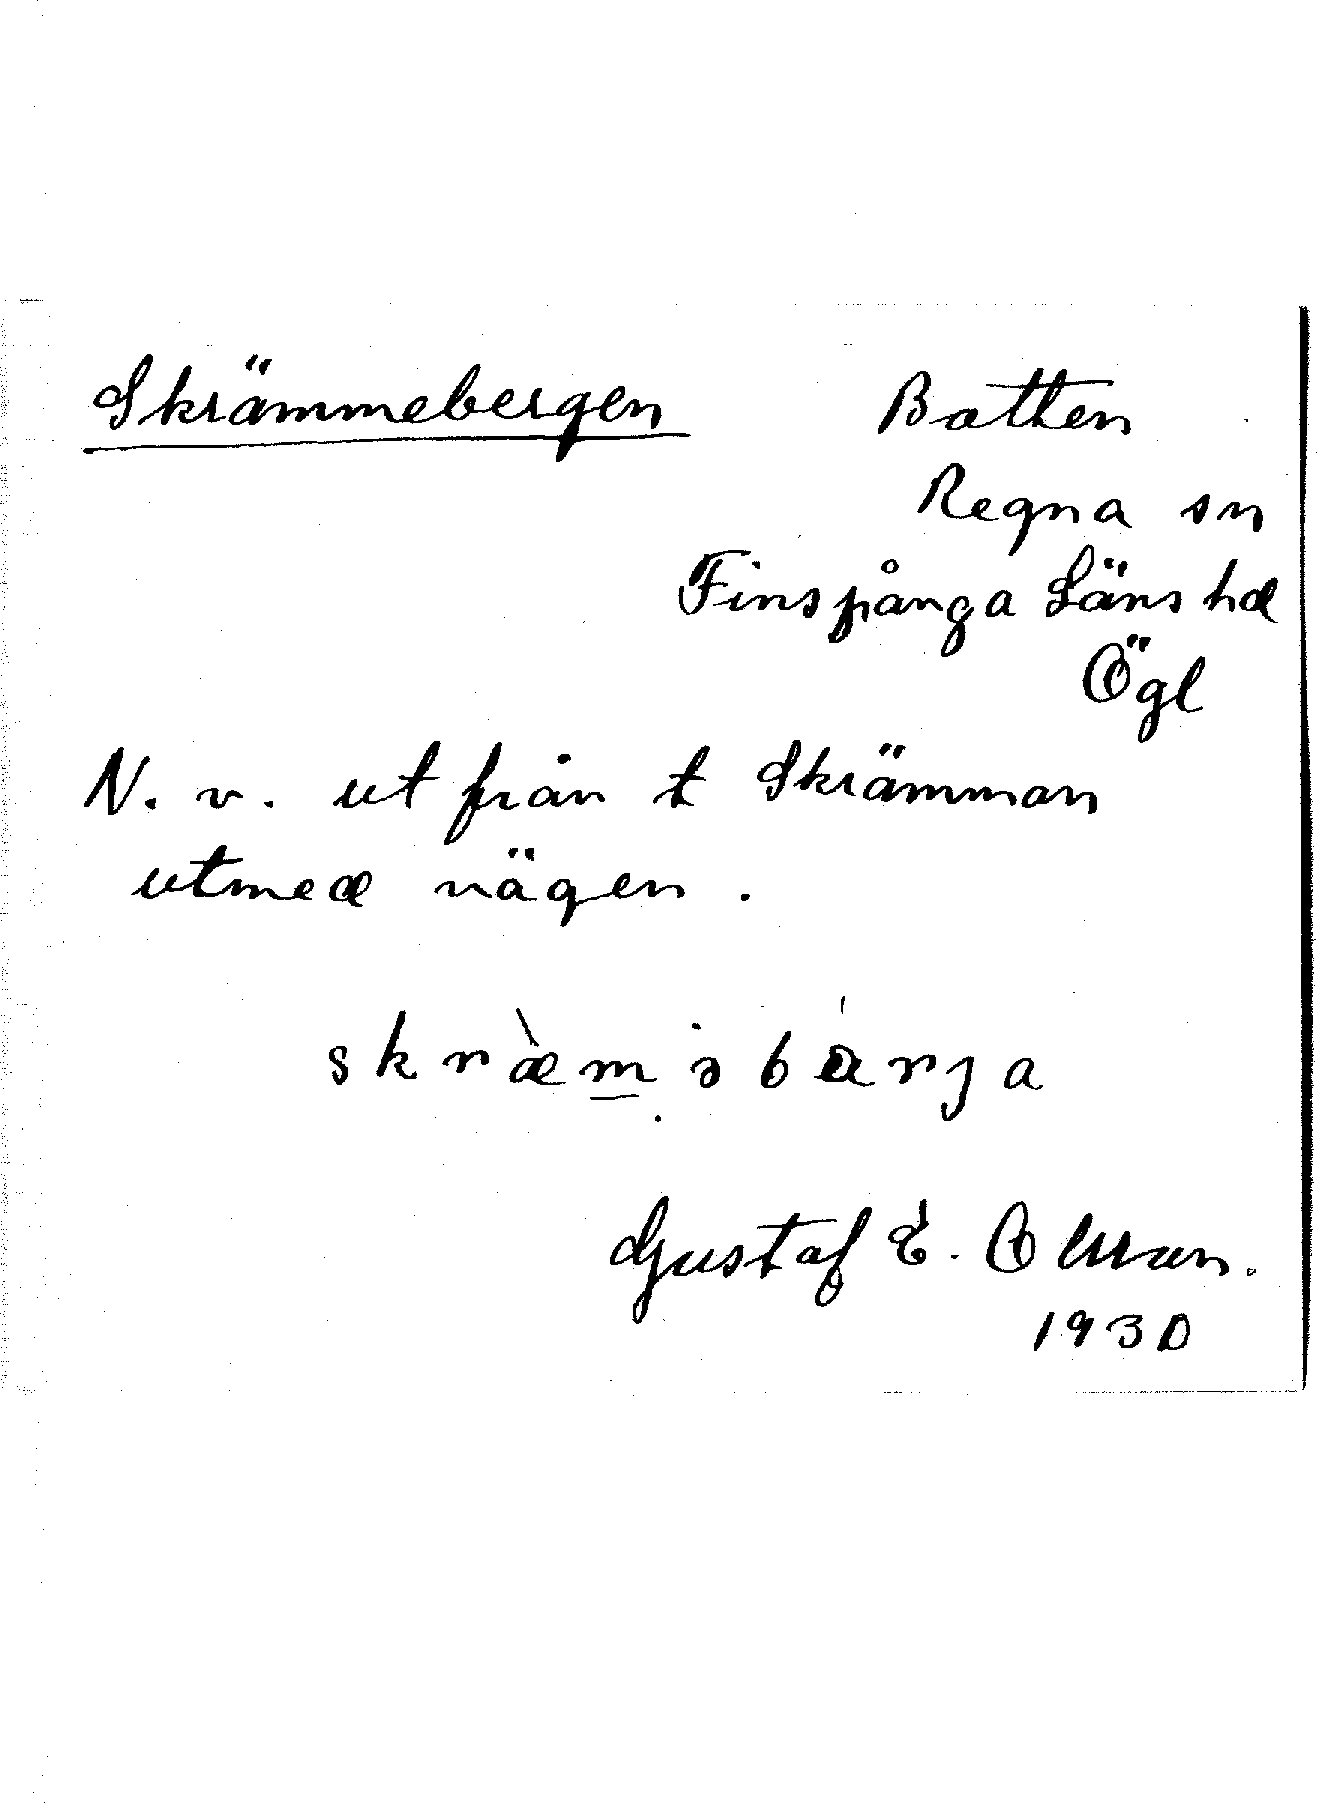 Skrämmebergen
Botten
Regna sn
Finspånga Läns hd
Ögl
N. v. ut från t Skrämman
utmed vägen.
skræ̀məbárja
Gustaf E.
1930